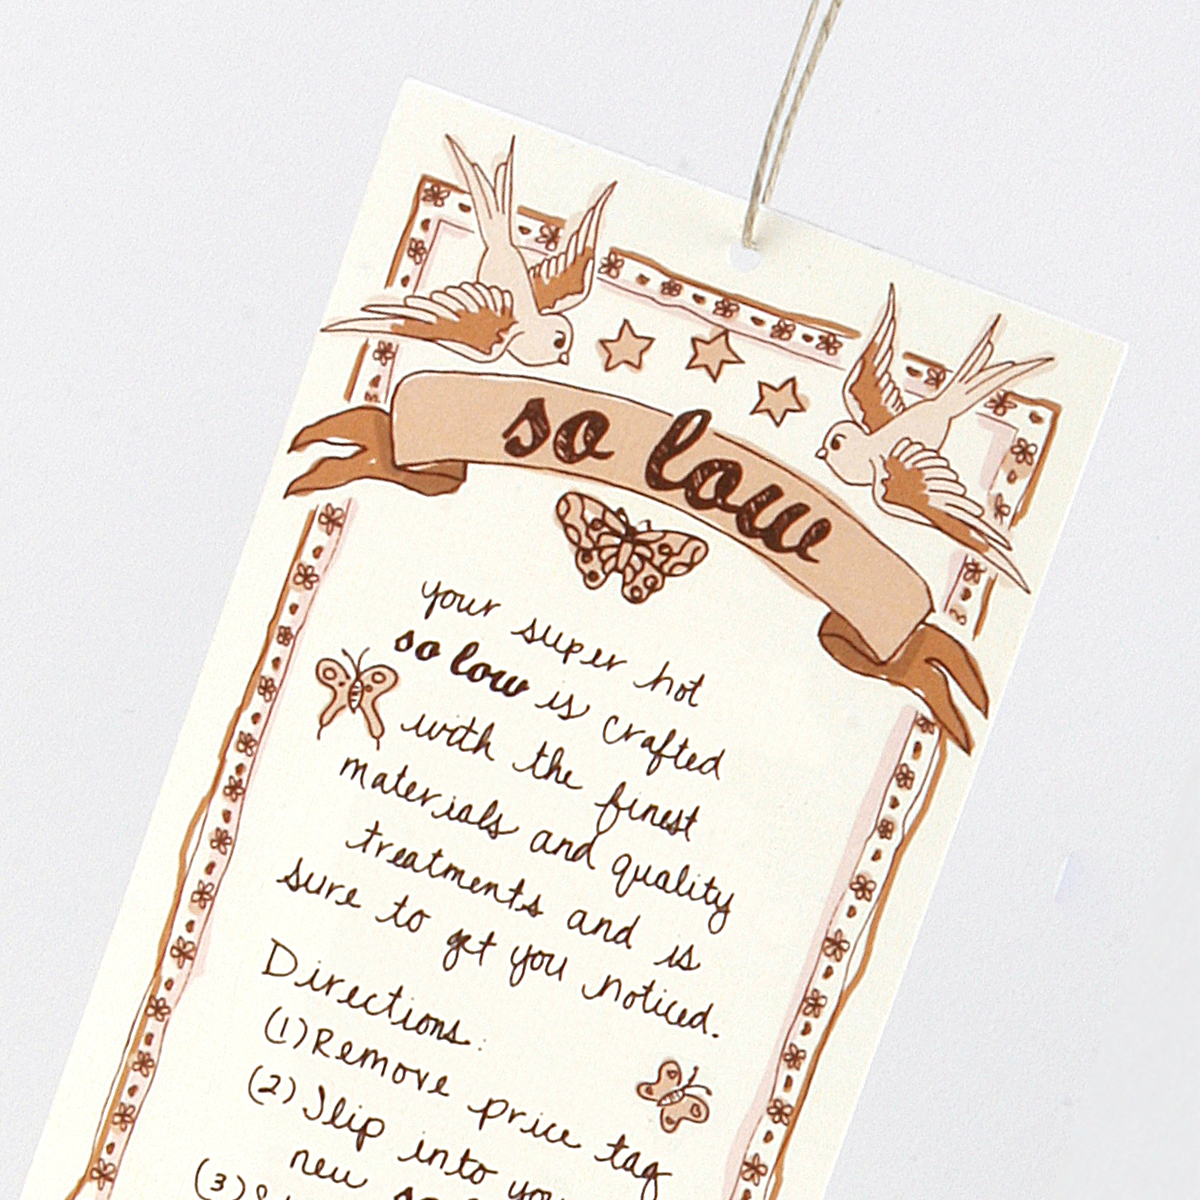 so low
your super hot
so low is crafted
with the finest
materials and quality
treatments and is
sure to get you noticed.
Directions:
(1) Remove price tag
(2) Slip into
new
(3)